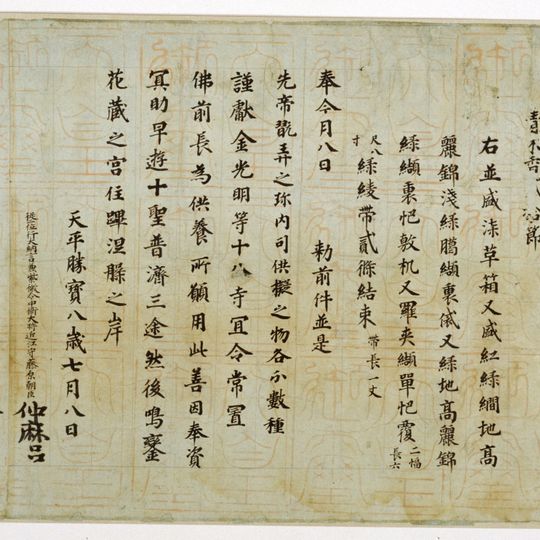 青木香貳拾節
右並盛漆草箱又盛紅緑繝地高
麗錦淺緑臈纈裏袋又緑地高麗錦
緑纈裏帊敷机又羅夾纈單帊覆二幅長六
尺八寸緑綾帶貳條結束帶長一丈
奉今月八日 勅前件並是
先帝翫弄之珎内司供擬之物各分數種
謹獻金光明等十八寺宜令常置
佛前長為供養所願用此善因奉資
冥助早遊十聖普濟三途然後鳴鑾
花蔵之宮住蹕涅槃之岸
天平勝寳八歳七月八日
從二位行大納言兼紫微令中衛大将近江守藤原朝臣仲麻呂